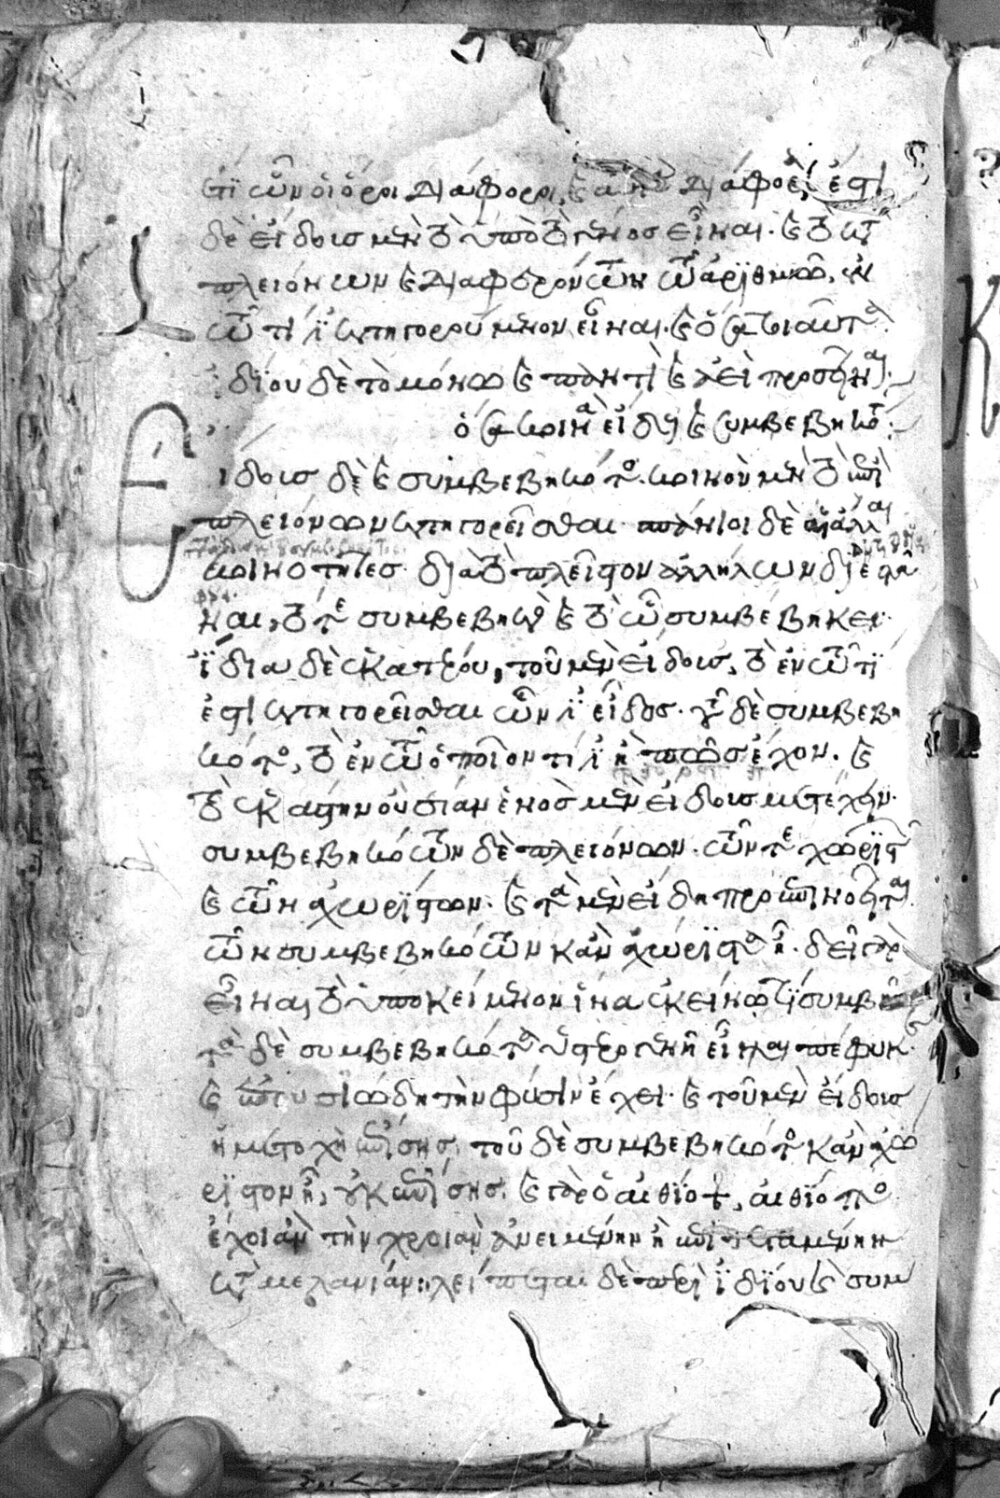 ὧν οἱ ὅροι διάφοροι, καὶ αὐτὰ διάφορά ἐστι
δὲ εἴδους μὲν τὸ ὑπὸ τὸ γένος εἶναι· καὶ τὸ κατὰ
πλειόνων καὶ διαφερόντων τῷ ἀριθμῷ, ἐν
τῷ τί ἐστι κατηγορούμενον εἶναι· καὶ ὅσα τοιαῦτα
ἰδίου δὲ τὸ μόνῳ καὶ παντὶ καὶ ἀεὶ προσεῖναι·
εἴδους καὶ συμβεβηκότος·
Εἴδους δὲ καὶ συμβεβηκότος κοινὸν μὲν τὸ ἐπὶ
πλειόνων κατηγορεῖσθαι· σπάνιοι δὲ αἱ ἄλλαι
κοινότητες διὰ τὸ πλεῖστον ἀλλήλων διεστά-
ναι, τό τε συμβεβηκὸς καὶ τὸ ᾧ συμβέβηκει·
ἴδια δὲ ἑκατέρου, τοῦ μὲν εἴδους, τὸ ἐν τῷ τί
ἐστι κατηγορεῖσθαι ὧν ἐστιν εἶδος· τοῦ δὲ συμβεβη
κότος, τὸ ἐν τῷ ὁποῖόν τί ἐστιν ἢ πῶς ἔχον· καὶ
τὸ ἑκάστην οὐσίαν ἑνὸς μὲν εἴδους μετέχειν·
συμβεβηκότων δὲ πλειόνων· τῶν τε χωριστῶν
καὶ τῶν ἀχωρίστων· καὶ τὰ μὲν εἴδη προεπινοεῖται
τῶν συμβεβηκότων κἂν ἀχώριστα ᾖ· δεῖ γὰρ
εἶναι τὸ ὑποκείμενον ἵνα ἐκείνῳ τι συμβῇ
τὰ δὲ συμβεβηκότα ὑστερογενῆ εἶναι πέφυκε·
καὶ ἐπεισοδιώδη τὴν φύσιν ἔχει· καὶ τοῦ μὲν εἴδους
ἡ μετοχὴ ἐπίσης· τοῦ δὲ συμβεβηκότος κἂν ἀχώ
ριστον ᾖ, οὐκ ἐπίσης· καὶ γὰρ ὁ αἰθίοψ, αἰθίοπος
ἔχοι ἂν τὴν χροιὰν ἀνειμένην ἢ ἐπιτεταμένην
κατὰ μελανίαν: λείπεται δὲ περὶ ἰδίου καὶ συμ